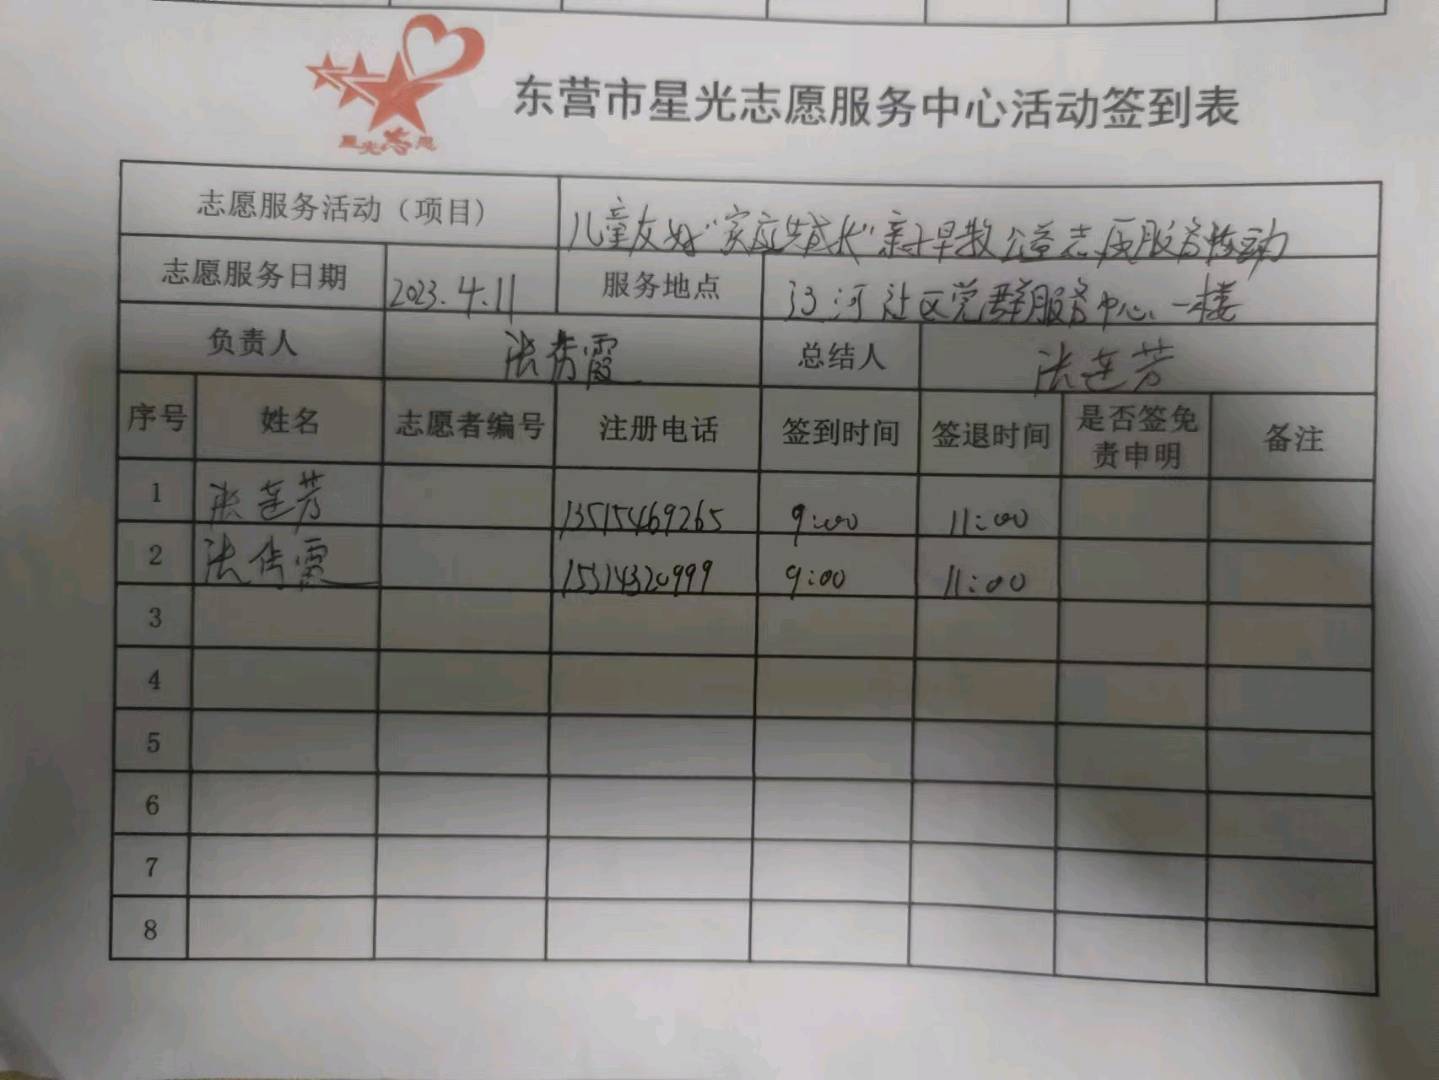 星光志愿
东营市星光志愿服务中心活动签到表
志愿服务活动（项目） 儿童友好“家庭成长”亲子早教公益志愿服务活动
志愿服务日期 2023.4.11 服务地点 河社区党群服务中心一楼
负责人 张秀霞 总结人 张莲芳
序号 姓名 志愿者编号 注册电话 签到时间 签退时间 是否签免责申明 备注
1 张莲芳 13515469265 9:00 11:00
2 张秀霞 15314320999 9:00 11:00
3
4
5
6
7
8